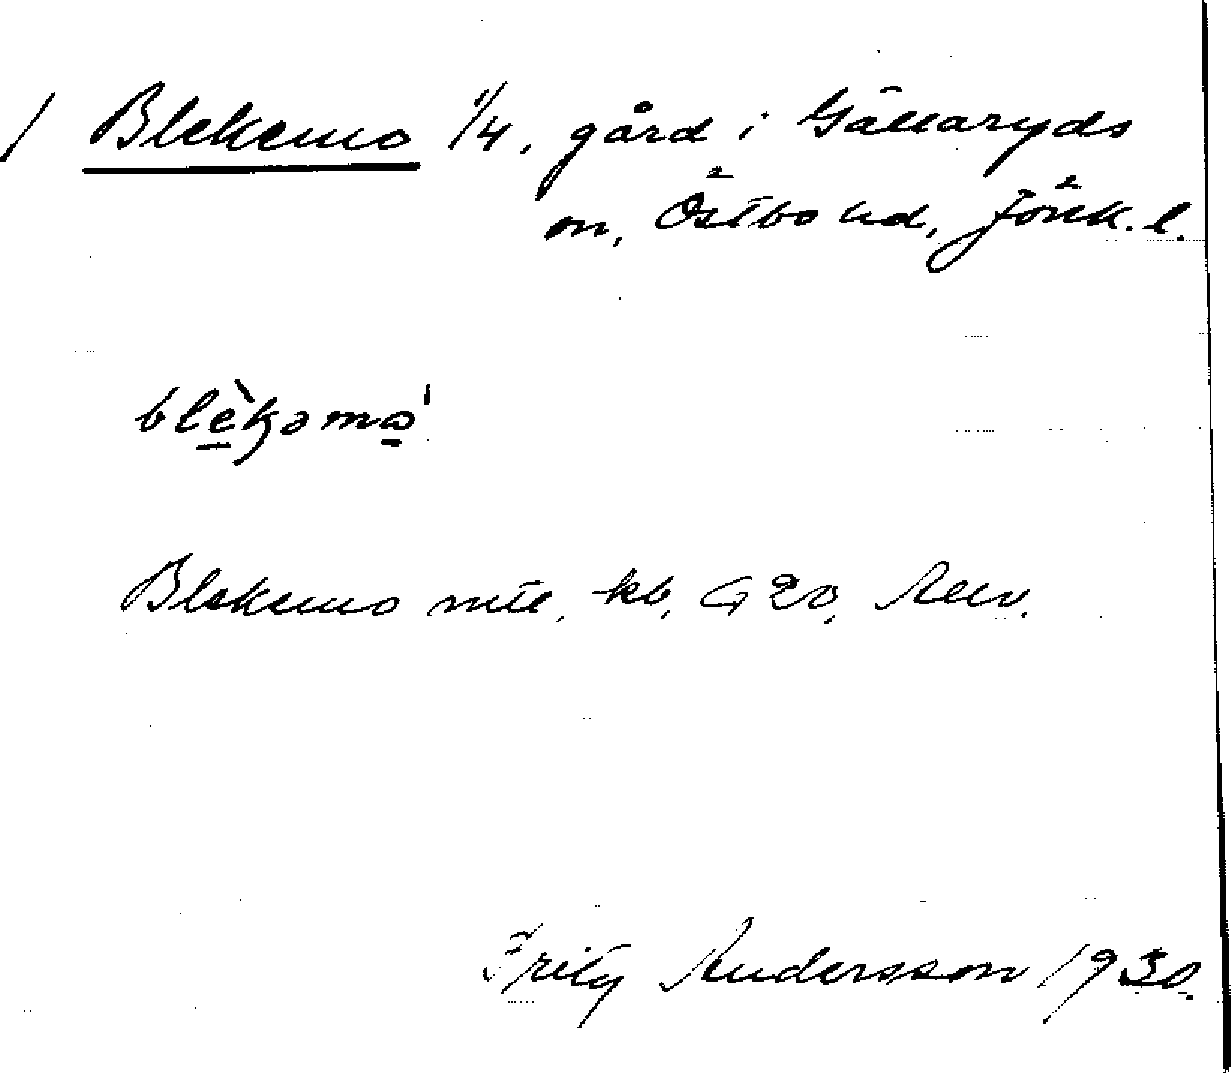 / Blekemo 1/4, gård i Gällaryds
sn, Östbo hd, Jönk. l.
blèkəmo'
Blekemo mtl, kb, G 20,
Fritz Andersson 1930.